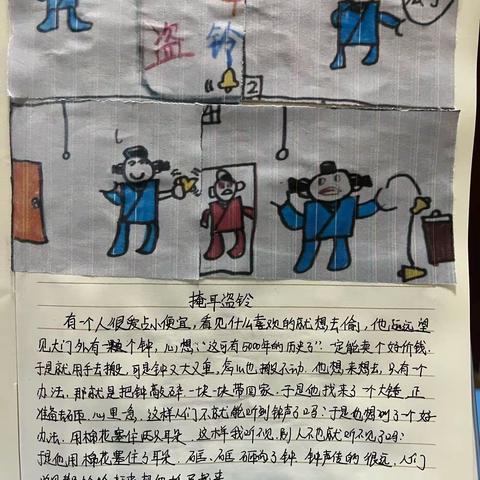 盗铃
2
掩耳盗铃
有一个人很爱占小便宜,看见什么喜欢的就想去偷,他远远望
见大门外有一个钟,心想:“这可有5000年的历史了”一定能卖个好价钱.
于是就用手去搬,可是钟又大又重,怎么也搬不动,他想来想去,只有一个
办法,那就是把钟敲碎一块一块带回家.于是他找来了一个大锤,正
准备去砸,心里急,这样人们不就能听到钟声了吗?于是他想到了一个好
办法,用棉花塞住两只耳朵,这样我听不见,别人不也就听不见了吗?
于是他用棉花塞住了耳朵,砸了钟,钟声传的很远,人们